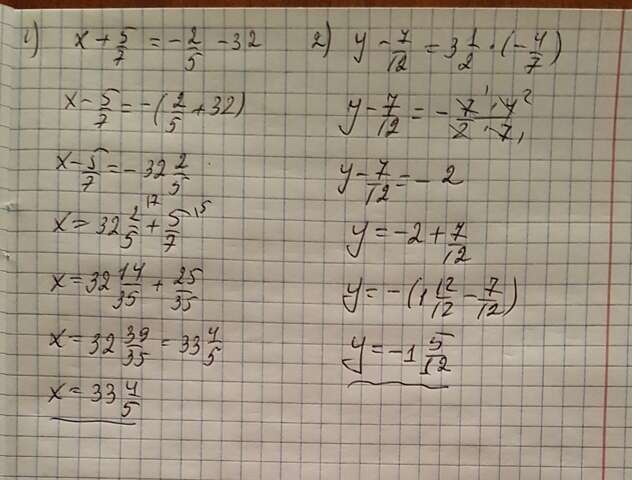 1) x + 5/7 = -2/5 - 32
x - 5/7 = -(2/5 + 32)
x - 5/7 = -32 2/5
x = 32 2/5 + 5/7
x = 32 14/35 + 25/35
x = 32 39/35 = 33 4/5
x = 33 4/5
2) y - 7/12 = 3 1/2 · (-4/7)
y - 7/12 = - 7 · 4 / 2 · 7
y - 7/12 = - 2
y = -2 + 7/12
y = -(1 12/12 - 7/12)
y = -1 5/12